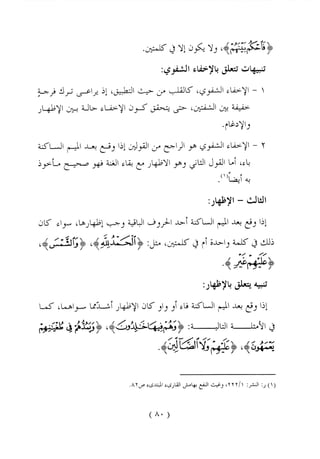 ﴿فَاحْكُم بَيْنَهُم﴾، ولا يكون إلا في كلمتين.
تنبيهات تتعلق بالإخفاء الشفوي:
١ - الإخفاء الشفوي، كالقلب من حيث التطبيق، إذ يراعى ترك فرجة
خفيفة بين الشفتين، حتى يتحقق كون الإخفاء حالة بين الإظهار
والإدغام.
٢ - الإخفاء الشفوي هو الراجح من القولين إذا وقع بعد الميم الساكنة
باء، أما القول الثاني وهو الاظهار مع بقاء الغنة فهو صحيح مأخوذ
به أيضاً(١).
الثالث - الإظهار:
إذا وقع بعد الميم الساكنة أحد الحروف الباقية وجب إظهارها، سواء كان
ذلك في كلمة واحدة أم في كلمتين، مثل: ﴿الْحَمْدُ لِلَّهِ﴾، ﴿وَالشَّمْسِ﴾،
﴿عَلَيْهِمْ غَيْرِ﴾.
تنبيه يتعلق بالإظهار:
إذا وقع بعد الميم الساكنة فاء أو واو كان الإظهار أشد مما سواهما، كما
في الأمثلة التالية: ﴿وَهُمْ فِيهَا خَالِدُونَ﴾، ﴿وَيَمُدُّهُمْ فِي طُغْيَانِهِمْ
يَعْمَهُونَ﴾، ﴿عَلَيْهِمْ وَلَا الضَّالِّينَ﴾.
(١) ر: النشر: ٢٢٢/١، وغيث النفع بهامش القارىء المبتدىء، ص ٨٢.
( ٨٠ )